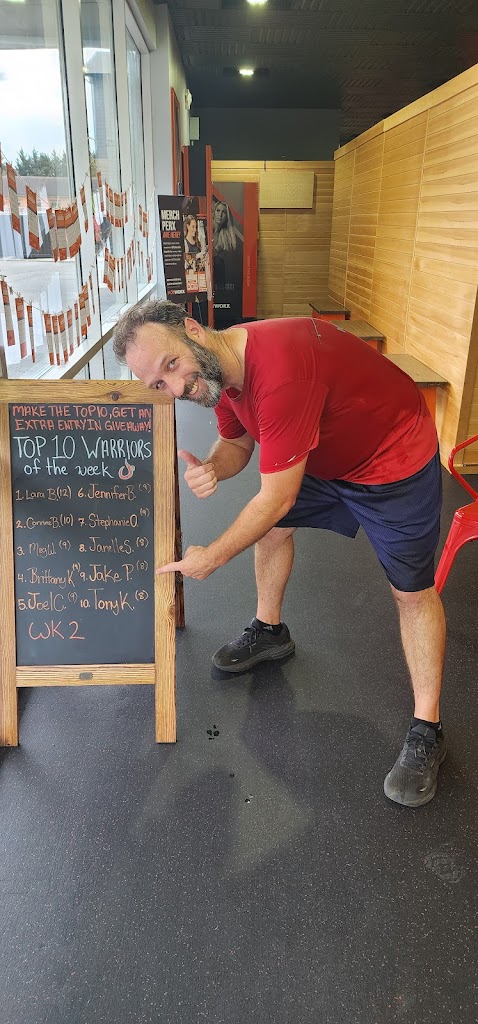 MERCH
PERX
ARE HERE!
MAKE THE TOP 10, GET AN
EXTRA ENTRY IN GIVEAWAY!
TOP 10 WARRIORS
of the week
1. Lara B. (12) 6. Jennifer B. (9)
2. Corinne B. (10) 7. Stephanie O. (9)
3. Meg W. (9) 8. Janelle S. (8)
4. Brittany K. (9) 9. Jake P. (8)
5. Joel C. (9) 10. Tony K. (8)
WK 2